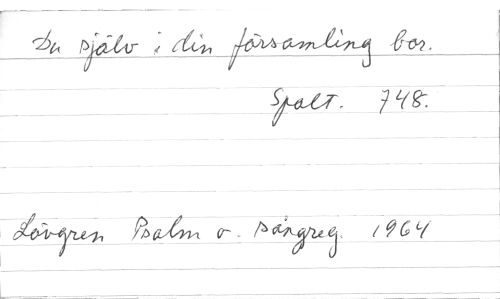 Du själv i din församling bor.
Spalt. 748.
Lövgren Psalm o. sångreg. 1964